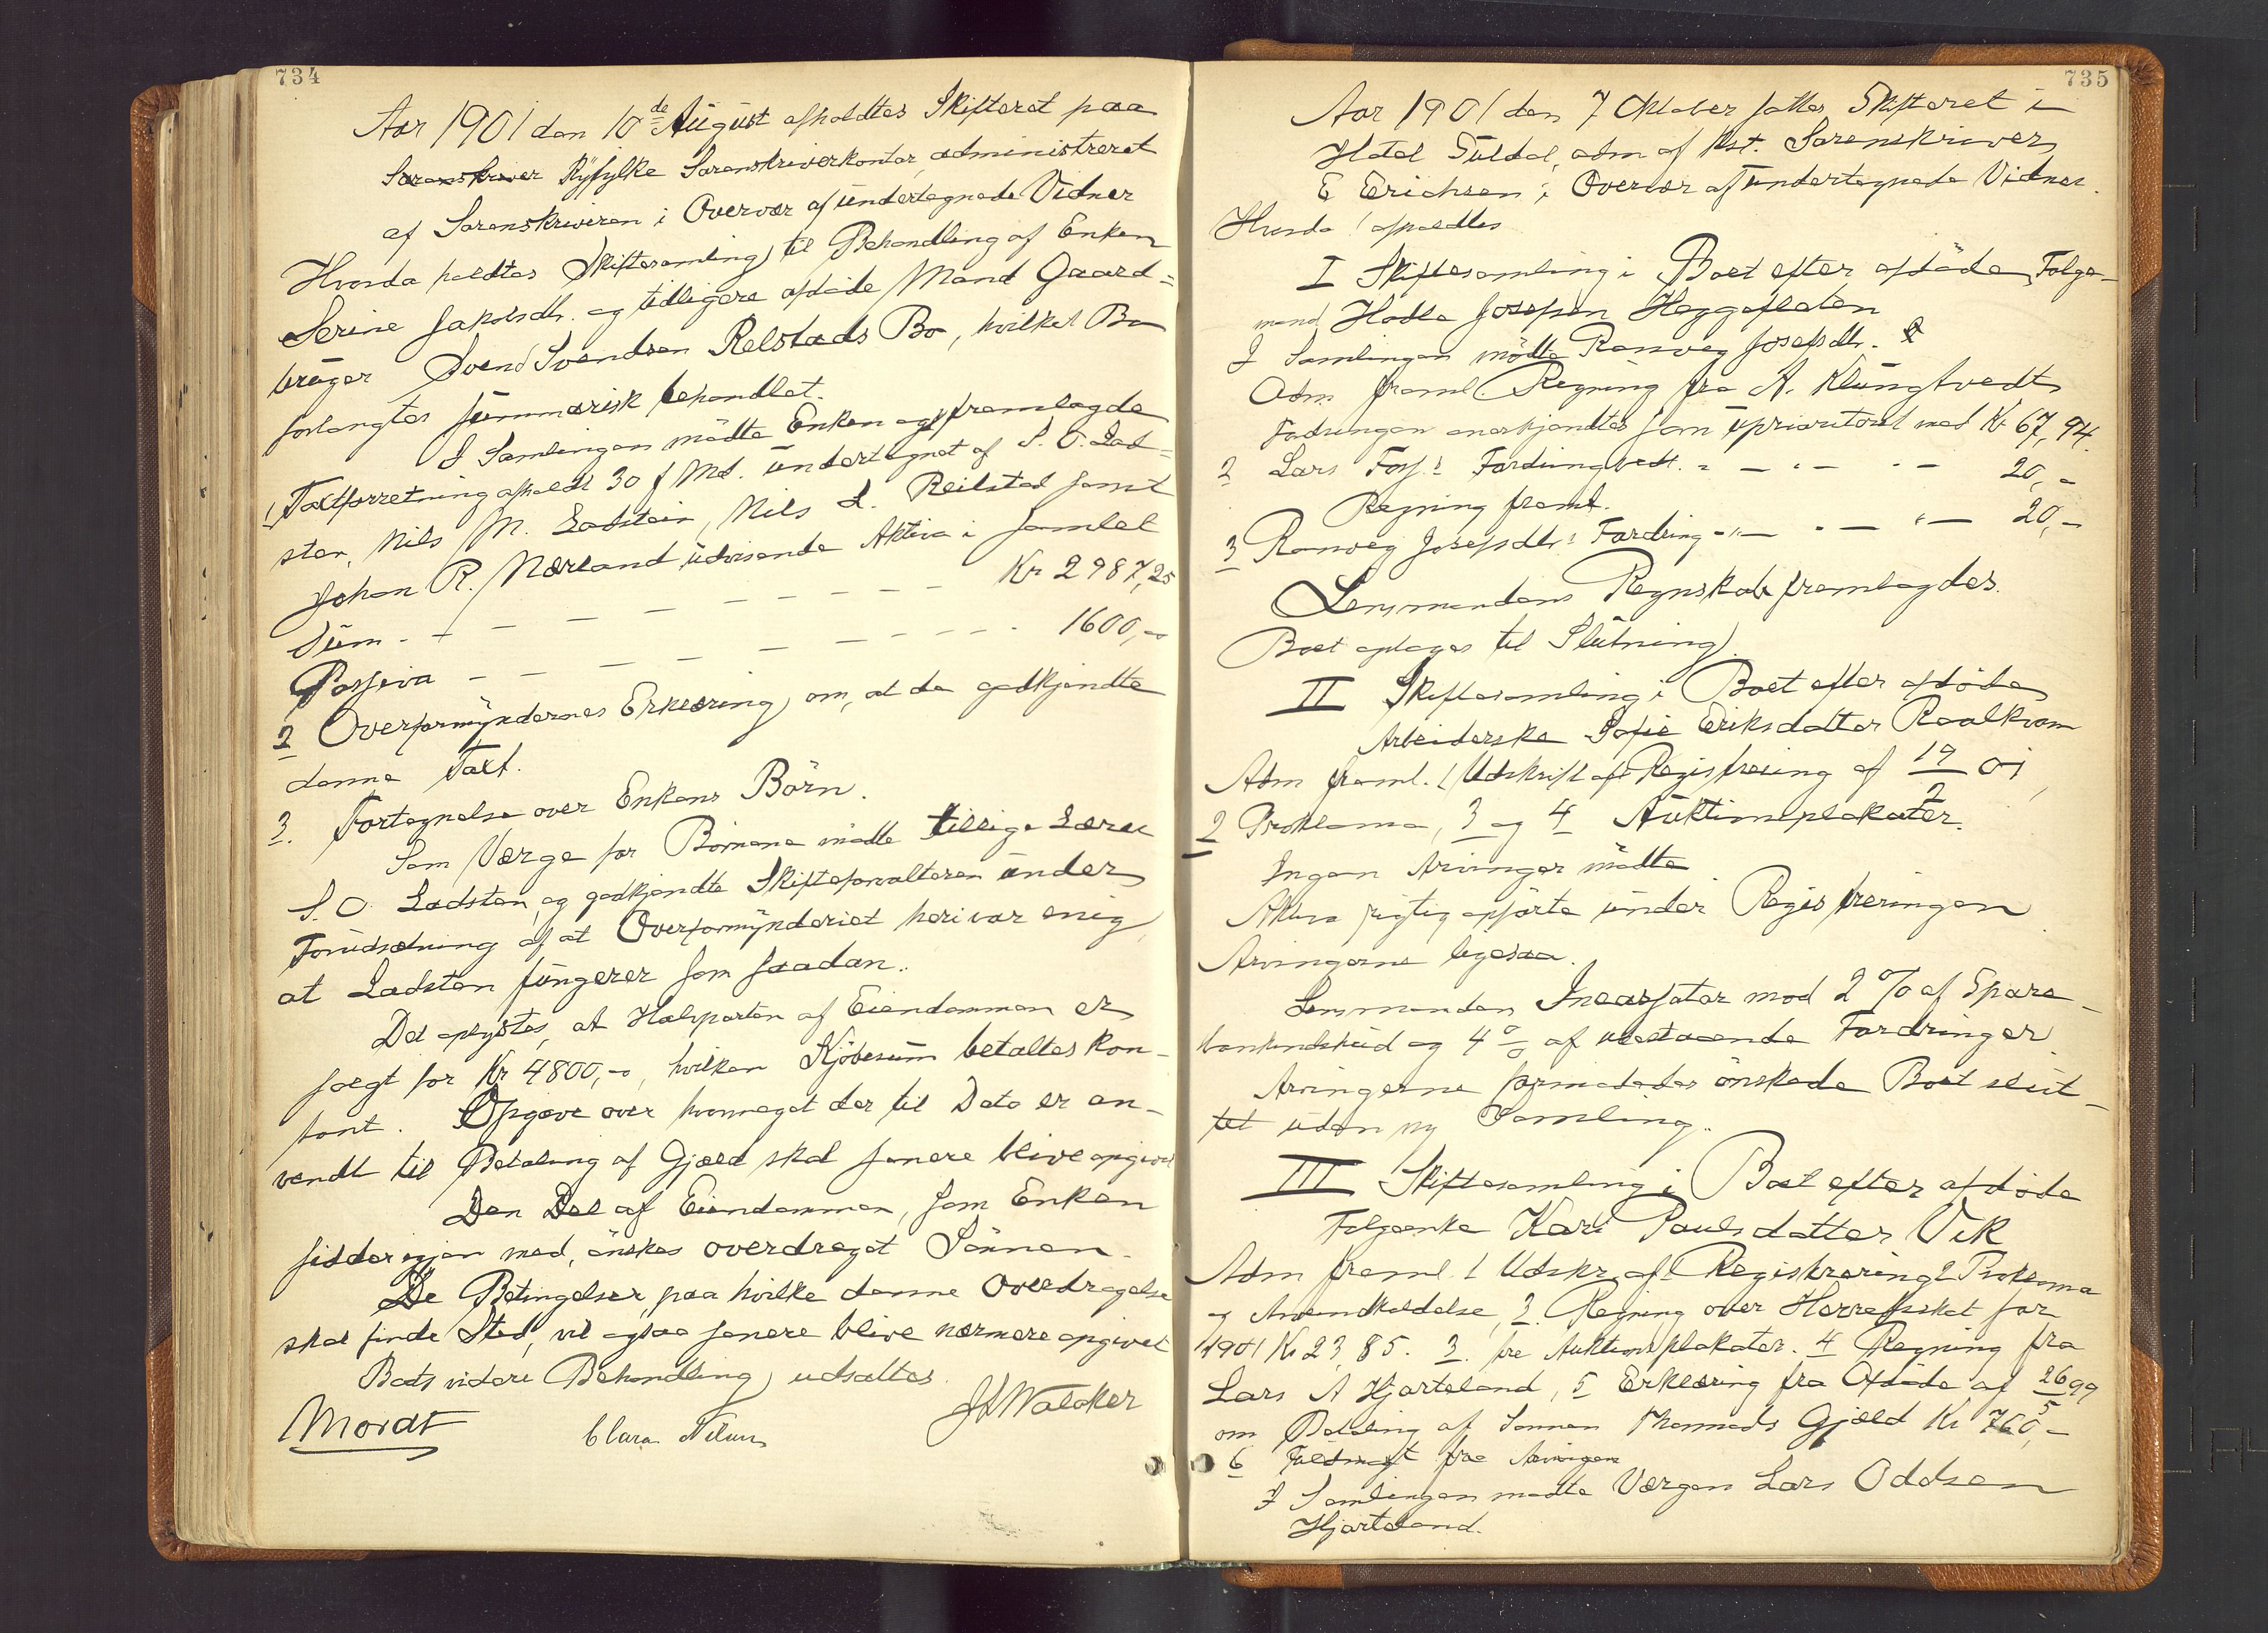 734
Aar 1901 den 10de August afholdtes Skifteret paa
Sorenskriver Ryfylke Sorenskriverkontor, administreret
af Sorenskriveren i Overvær af undertegnede Vidner
Hvorda holdtes Skiftesamling til Behandling af Enken
Serine Jakobsdtr. og tidligere afdøde Mand Gaard=
bruger Svend Svendsen Relstads Bo, hvilket Bo
forlangtes summarisk behandlet.
I Samlingen mødte Enken og fremlagde
1 Taxtforretning afholdt 30 f Md. undertegnet af S. O. Lad=
sten, Nils M. Ladstein, Nils L. Reilstad samt
Johan R. Nærland udvisende Aktiva i samlet
Sum - - - - - - - - - Kr 2987,25
Passiva - - - - - - - - 1600,-
2 Overformyndernes Erklæring om, at de godkjendte
denne Taxt.
3. Fortegnelse over Enkens Børn.
Som Værge for Børnene mødte tillige Lærer
S. O. Ladsten, og godkjendte Skifteforvalteren under
Forudsætning af at Overformynderiet heri var enig,
at Ladsten fungerer som saadan.
Det oplystes, at Halvparten af Eiendommen er
solgt for Kr 4800,-, hvilken Kjøbesum betaltes kon-
tant. Opgave over hvormeget der til Dato er an-
vendt til Betaling af Gjæld skal senere blive opgivet
Den Del af Eiendommen, som Enken
sidder igjen med, ønskes overdraget Sønnen.
De Betingelser, paa hvilke denne Overdragelse
skal finde Sted, vil ogsaa senere blive nærmere opgivet
Boets videre Behandling udsattes.
Mordt Clara Nilsen J K Walaker
735
Aar 1901 den 7 Oktober sattes Skifteret i
Hotel Suldal, adm af Kst. Sorenskriver
E Erichsen i Overvær af undertegnede Vidner.
Hvorda! afholdtes
I Skiftesamling i Boet efter afdøde Folge-
mand Hodle Josefsen Heggefleten
I Samlingen mødte Ranveg Josefsdtr.
Adm freml. Regning fra A. Klungtvedt
Fordringen anerkjendtes som uprioriteret med Kr 67,94.
2 Lars Fos.: Fordring vedt. - - - - 20,-
Regning freml.
3 Ranveg Josefsdtr: Fordring - - - 20,-
Lensmandens Regnskab fremlagdes.
Boet optages til Slutning.
II Skiftesamling i Boet efter afdøde
Arbeiderske Sofie Eriksdatter Roalkvam
Adm freml. 1 Udskrift af Registrering af 19/2 01,
2 Proklama, 3 og 4 Auktionsplakater.
Ingen Arvinger mødte
Aktiva rigtig opførte under Registreringen
Arvingerne ligesaa.
Lensmanden Incasserer mod 2 % af Spare-
bankindskud og 4 % af udestaaende Fordringer
Arvingerne formodedes ønskede Boet slut-
tet uden ny Samling.
III Skiftesamling i Boet efter afdøde
Folgeenke Kari Paulsdatter Vik
Adm freml. 1 Udskr. af Registrering 2 Proklama
og Anmeldelse, 2. Regning over Herredsskat for
1901 Kr 23,85. 3. fre Auktionsplakater. 4 Regning fra
Lars A Hjorteland, 5 Erklæring fra Afdøde af 26/5 99
om Betaling af Sønnen Thormods Gjæld Kr 760,-
6 Fuldmagt fra Arvingen
I Samlingen mødte Værgen Lars Oddsen
Hjorteland.